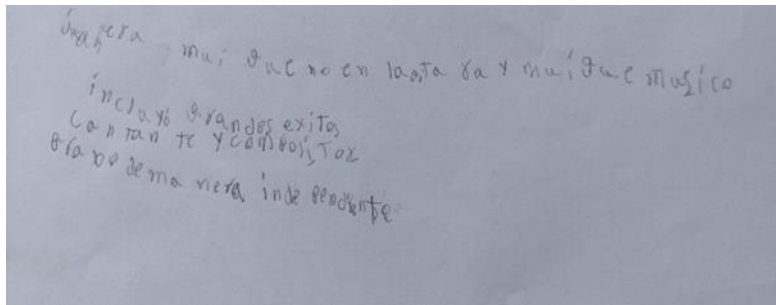 era mui gue no en laguta ra y mui gue musico
incluyó grandes exitos
cantan te y composi Tor
grabo de ma nera inde pendiente